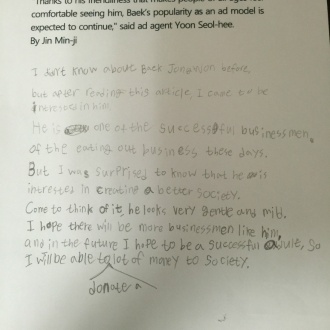 comfortable seeing him, Baek's popularity as an ad model is
expected to continue," said ad agent Yoon Seol-hee.
By Jin Min-ji
I don't know about Baek Jongwon before,
but after reading this article, I came to be
interested in him.
He is one of the successful businessmen
of the eating out business these days.
But I was surprised to know that he is
intrested in creating a better society.
Come to think of it, he looks very gentle and mild.
I hope there will be more businessmen like him,
and in the future I hope to be a successful adult, so
I will be able to lot of money to society.
donate a